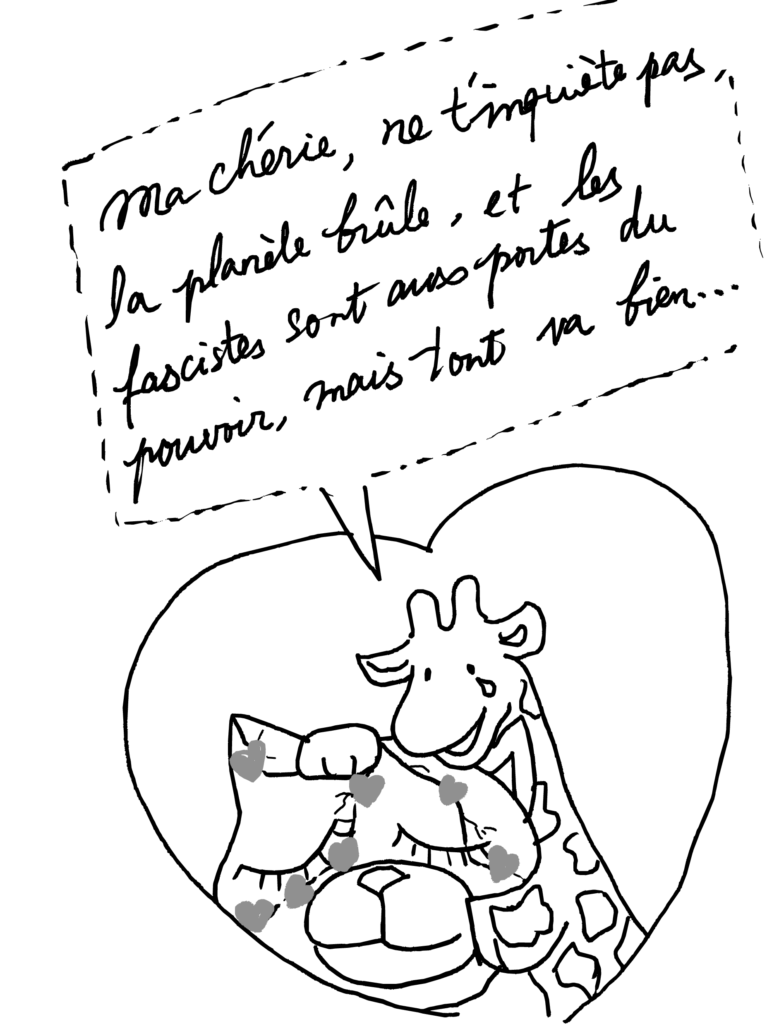 Ma chérie, ne t'inquiète pas,
la planète brûle, et les
fascistes sont aux portes du
pouvoir, mais tout va bien...